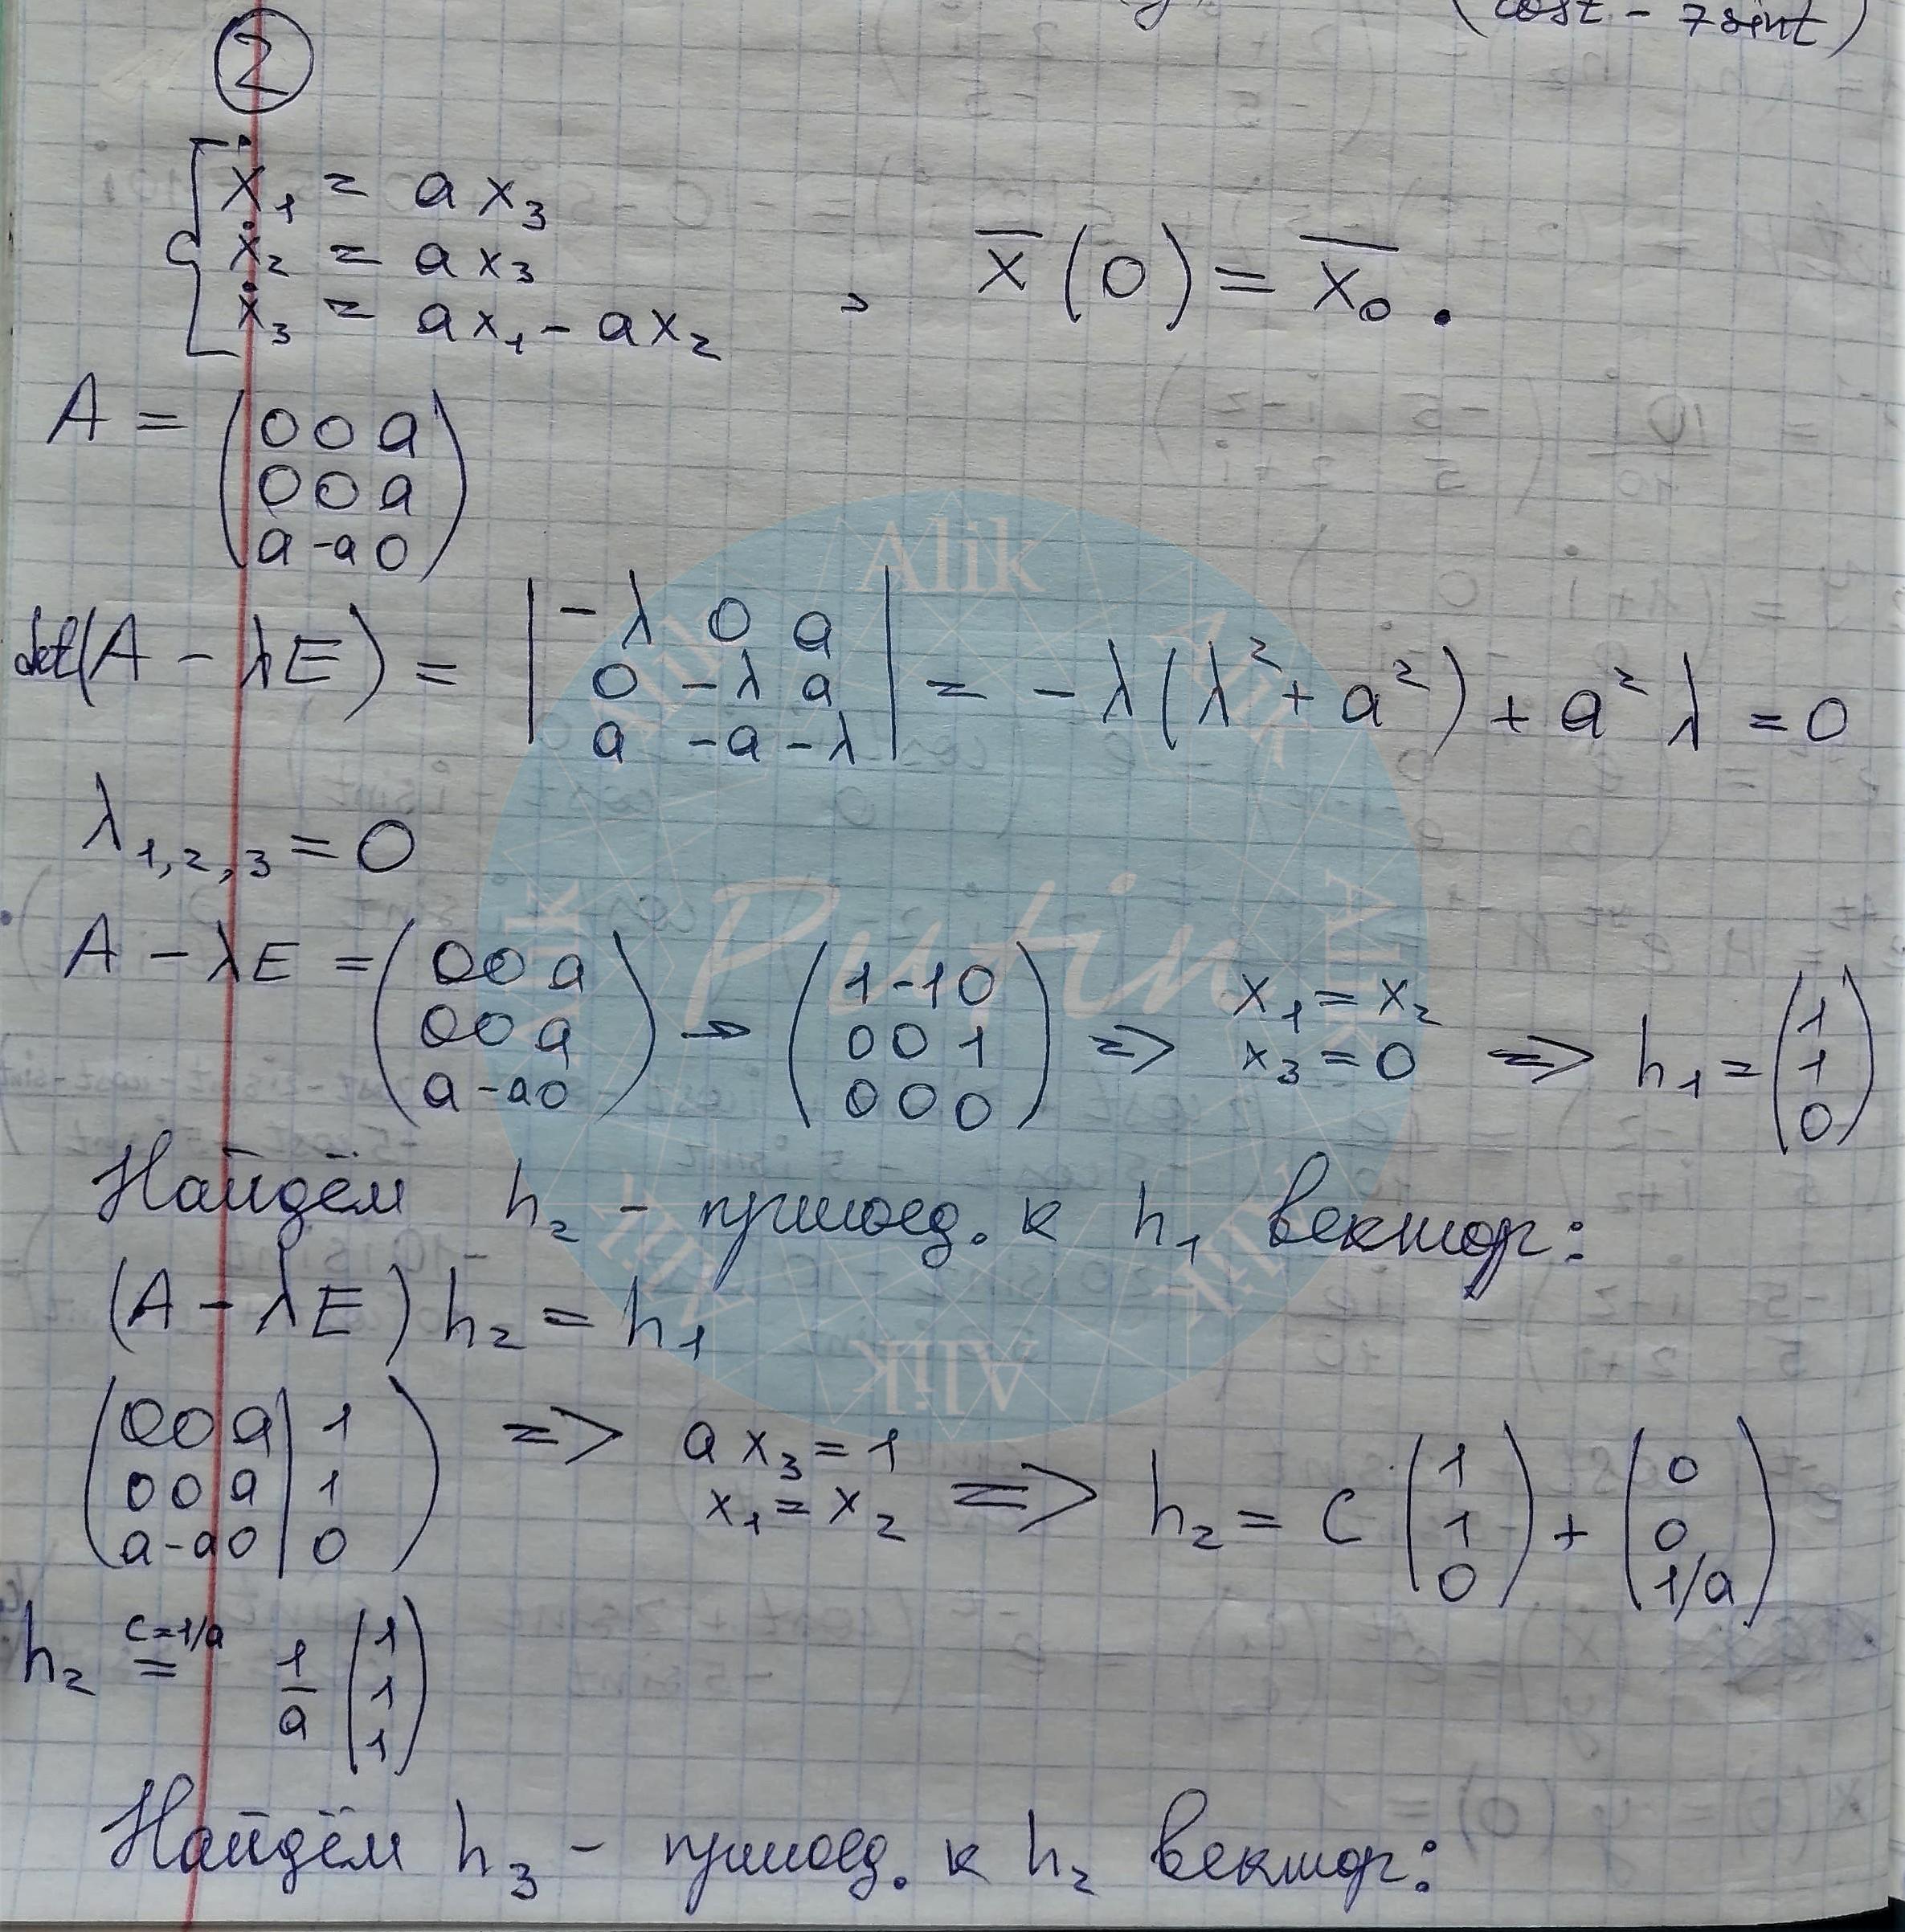 (cost - 7sint)
②
ẋ₁ = a x₃
ẋ₂ = a x₃
ẋ₃ = a x₁ - a x₂ , x̅(0) = x̅₀.
A = (0 0 a
0 0 a
a -a 0)
det(A - λE) = |-λ 0 a
0 -λ a
a -a -λ| = -λ(λ² + a²) + a²λ = 0
λ₁,₂,₃ = 0
A - λE = (0 0 a
0 0 a
a -a 0) → (1 -1 0
0 0 1
0 0 0) => x₁ = x₂
x₃ = 0 => h₁ = (1
1
0)
Найдём h₂ - присоед. к h₁ вектор:
(A - λE)h₂ = h₁
(0 0 a | 1
0 0 a | 1
a -a 0 | 0) => a x₃ = 1
x₁ = x₂ => h₂ = C (1
1
0) + (0
0
1/a)
h₂ = (c=1/a) 1/a (1
1
1)
Найдём h₃ - присоед. к h₂ вектор:
Alik
Alik
Alik
Alik
Alik
Alik
Alik
Alik
Putin